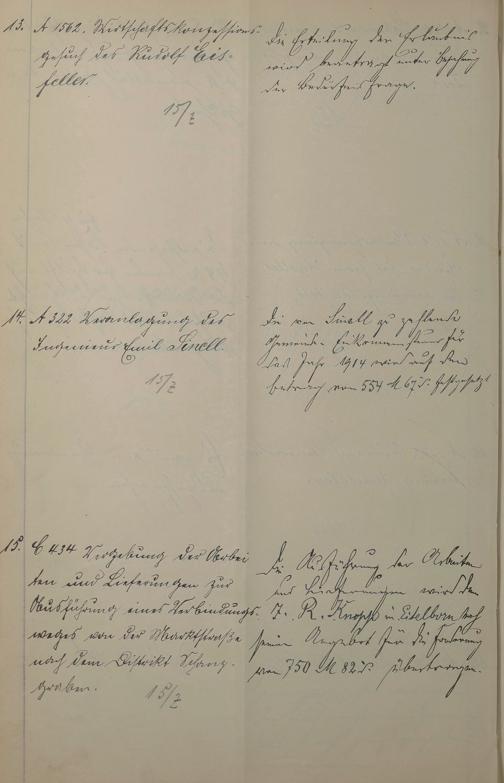 13. A 1562. Wirtschaftskonzessions
gesuch des Rudolf Eis-
feller.
15/7
Die Erteilung der Erlaubnis
wird beantragt unter Bejahung
der Bedürfnisfrage.
14. A 322 Veranlagung des
Ingenieurs Emil Sinell.
15/7
Die von Sinell zu zahlende
Gemeinde-Einkommensteuer für
das Jahr 1914 wird auf den
Betrag von 554 M 67 d. festgesetzt
15. C 434 Vergebung der Arbei
ten und Lieferungen zur
Ausführung eines Verbindungs-
weges von der Marktstraße
nach dem Distrikt Schang-
graben.
15/7
Die Ausführung der Arbeiten
und Lieferungen wird dem
R. Knopp in Eitelborn nach
seinem Angebot für die Forderung
von 750 M 82 d. übertragen.